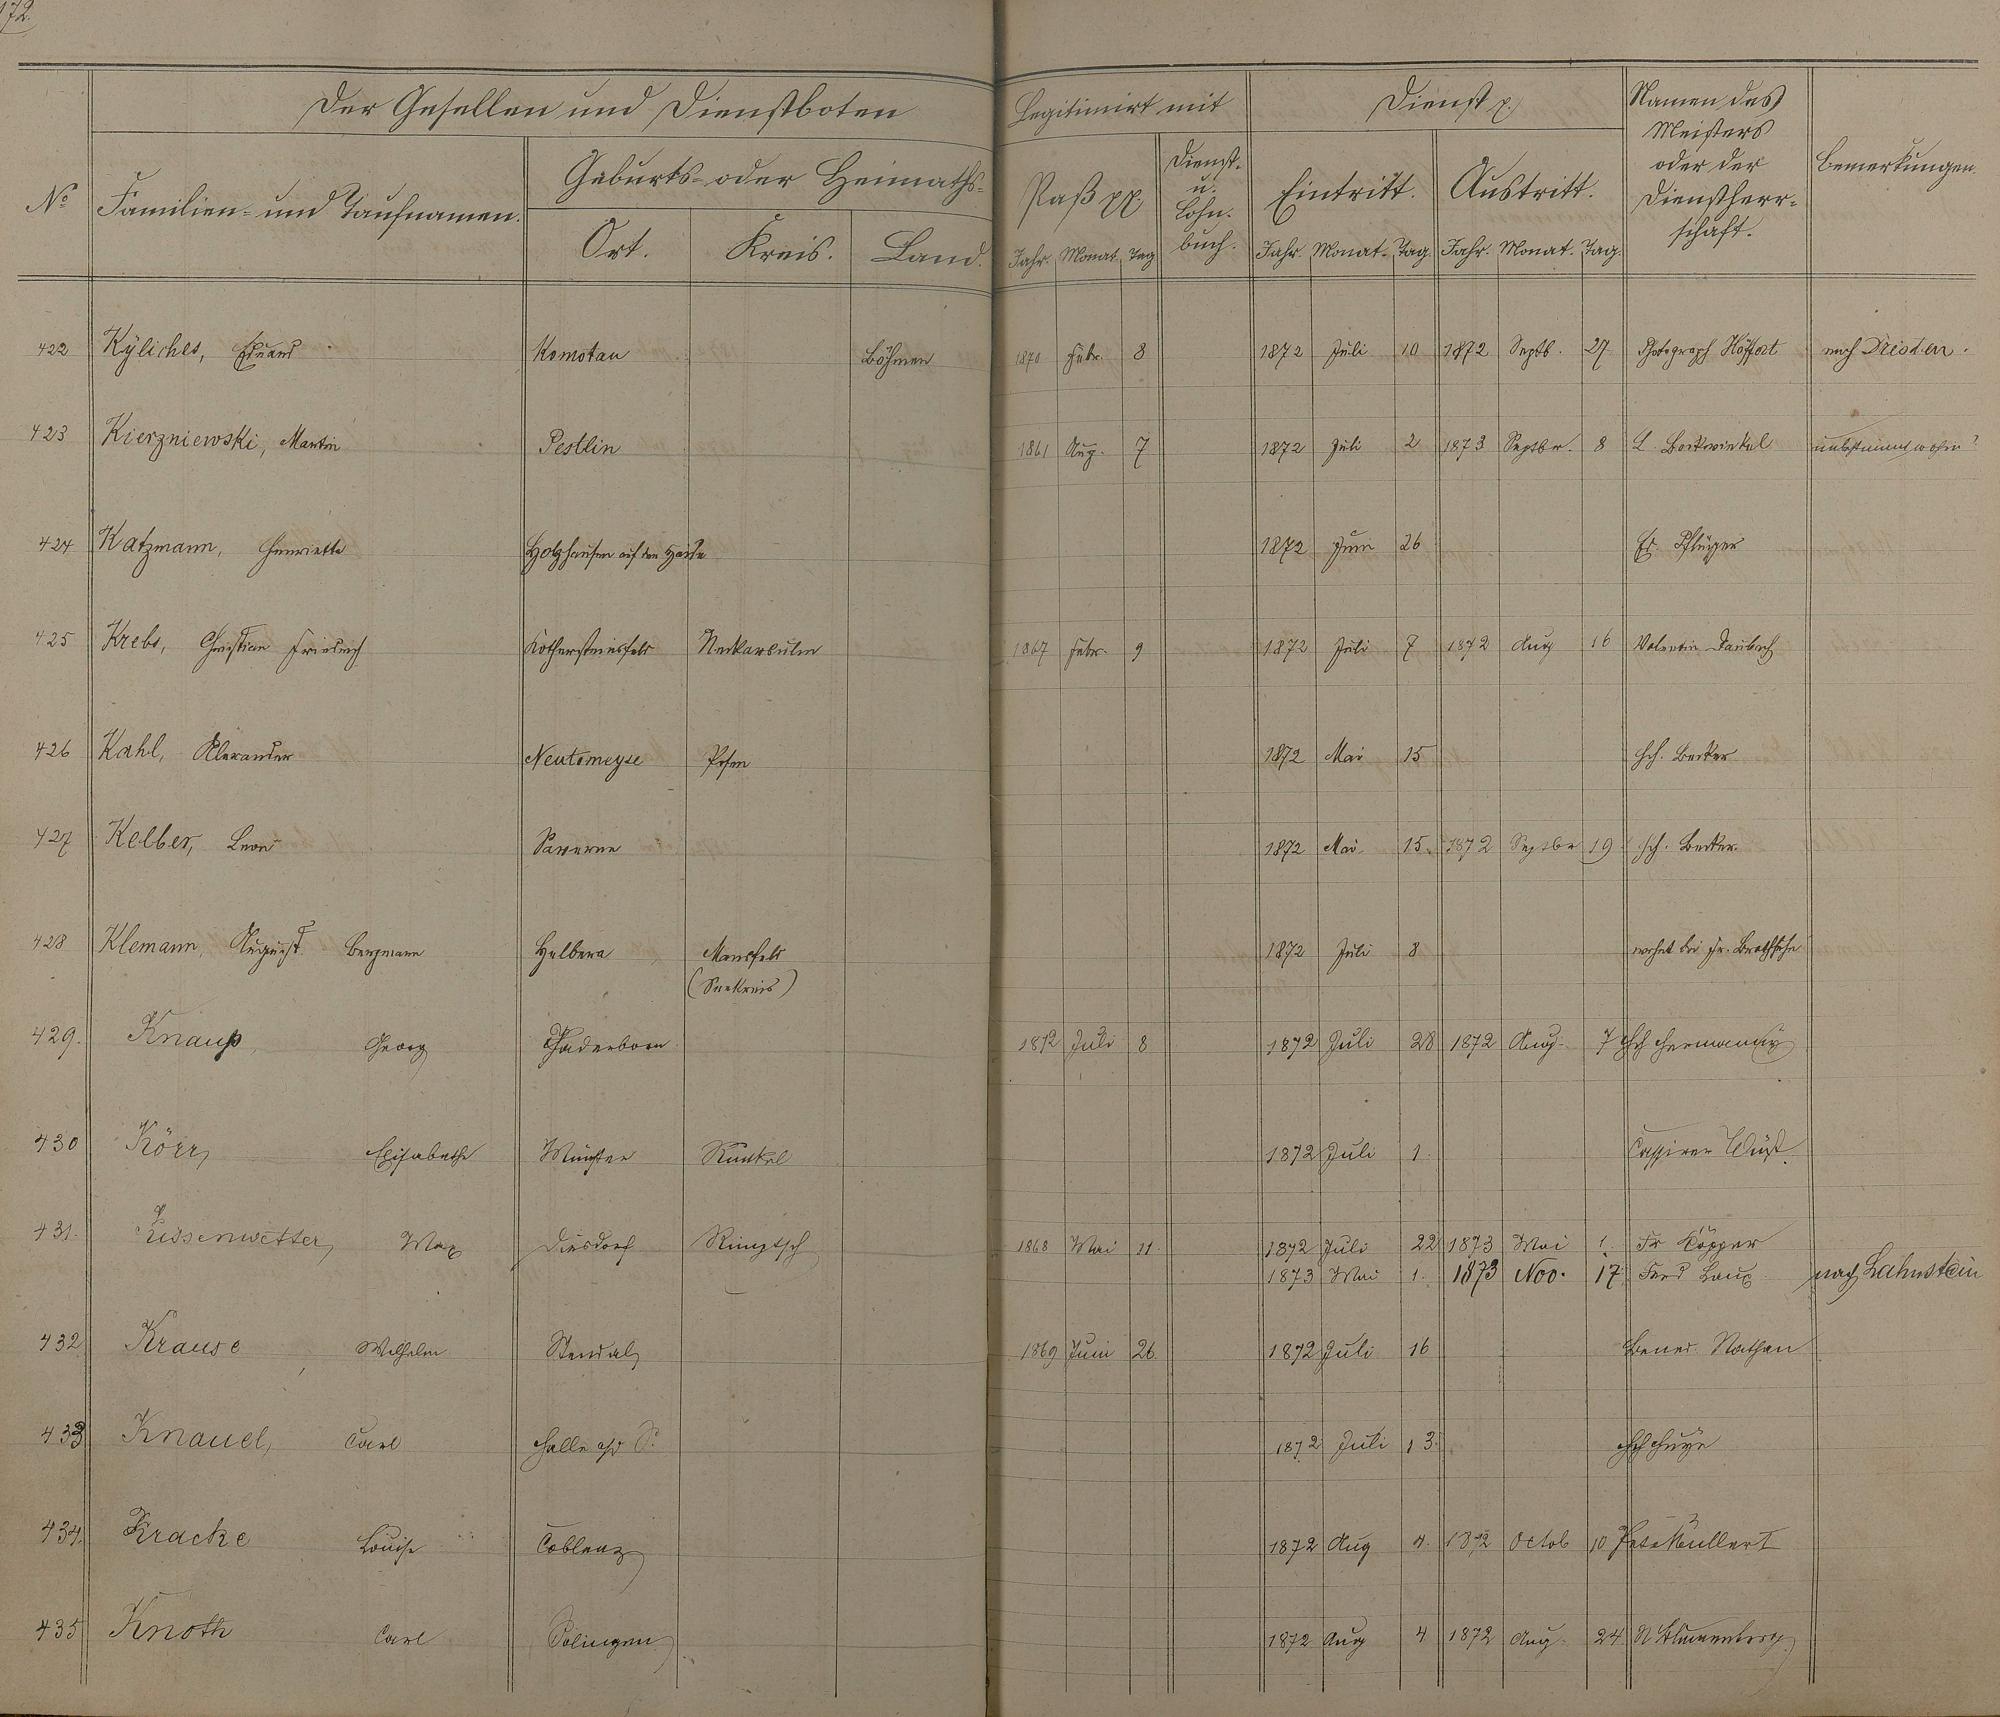 172.
Der Gesellen und Dienstboten Legitimirt mit Dienst p. Namen des Meisters oder der Dienstherrschaft. Bemerkungen.
No Familien- und Taufnamen. Geburts- oder Heimaths- Paß pp. Dienst- u. Lohn-buch. Eintritt. Austritt.
Ort. Kreis. Land. Jahr. Monat. Tag Jahr. Monat. Tag. Jahr. Monat. Tag.
422 Kyliches, Eduard Komotau Böhmen 1870 Febr. 8 1872 Juli 10 1872 Septb. 27 Photograph Höffert nach Dresden.
423 Kierzniewski, Martin Pestlin 1861 Aug. 7 1872 Juli 2 1873 Septbr. 8 L. Bockwinkel unbestimmt wohin?
424 Katzmann, Henriette Holzhausen auf der Haide 1872 Juni 26 Fr. Pflüger
425 Krebs, Christian Friedrich Neckarsulm 1867 Febr. 9 1872 Juli 7 1872 Aug 16 Valentin Daubach
426 Kahl, Alexander Neutomeyse Posen 1872 Mai 15 Hch. Becker
427 Kelber, Leon Saverne 1872 Mai 15. 1872 Septbr 19 Hch. Becker.
428 Klemann, August Bergmann Helbera Mansfeld 1872 Juli 8 wohnt bei Fr.
(Seekreis)
429. Knaup, Georg Paderborn 1872 Juli 8 1872 Juli 28 1872 Aug. 7 Hch Hermann
430 Körr, Elisabethe Münster Runkel 1872 Juli 1. Cassirer Wüst
431. Kiesenwetter, Max Diesdorf 1868 Mai 11. 1872 Juli 22 1873 Mai 1. Fr Köpper
1873 Mai 1. 1873 Nov. 17 Ferd Laux nach Lahnstein
432 Krause, Wilhelm Stendal 1869 Juni 26. 1872 Juli 16 Bened. Nathan
433 Knauel, Carl Halle a/d S. 1872 Juli 13. Hch
434. Kracke Louise Coblenz 1872 Aug 4. 1872 Octob 10
435 Knoth Carl Solingen 1872 Aug 4 1872 Aug. 24 N Blumenberg